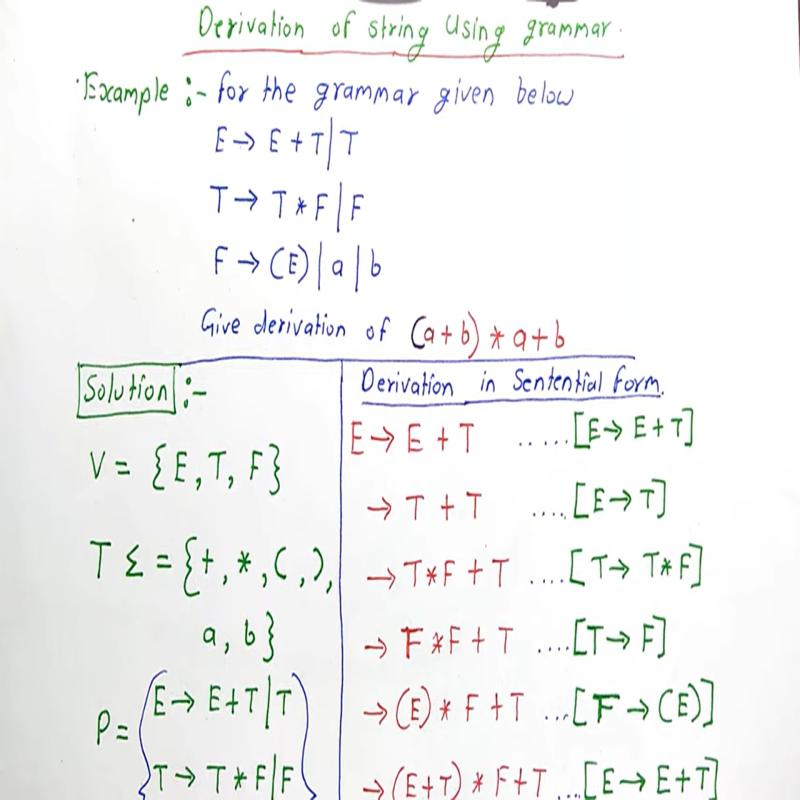 Derivation of string Using grammar.
Example :- for the grammar given below
E → E + T | T
T → T * F | F
F → (E) | a | b
Give derivation of (a+b) * a+b
Solution :-
V = {E, T, F}
T Σ = {+, *, (, ),
a, b}
P = E → E+T | T
T → T * F | F
Derivation in Sentential form.
E → E + T ..... [E → E + T]
→ T + T ..... [E → T]
→ T * F + T .... [T → T * F]
→ F * F + T .... [T → F]
→ (E) * F + T ... [F → (E)]
→ (E+T) * F+T ... [E → E+T]